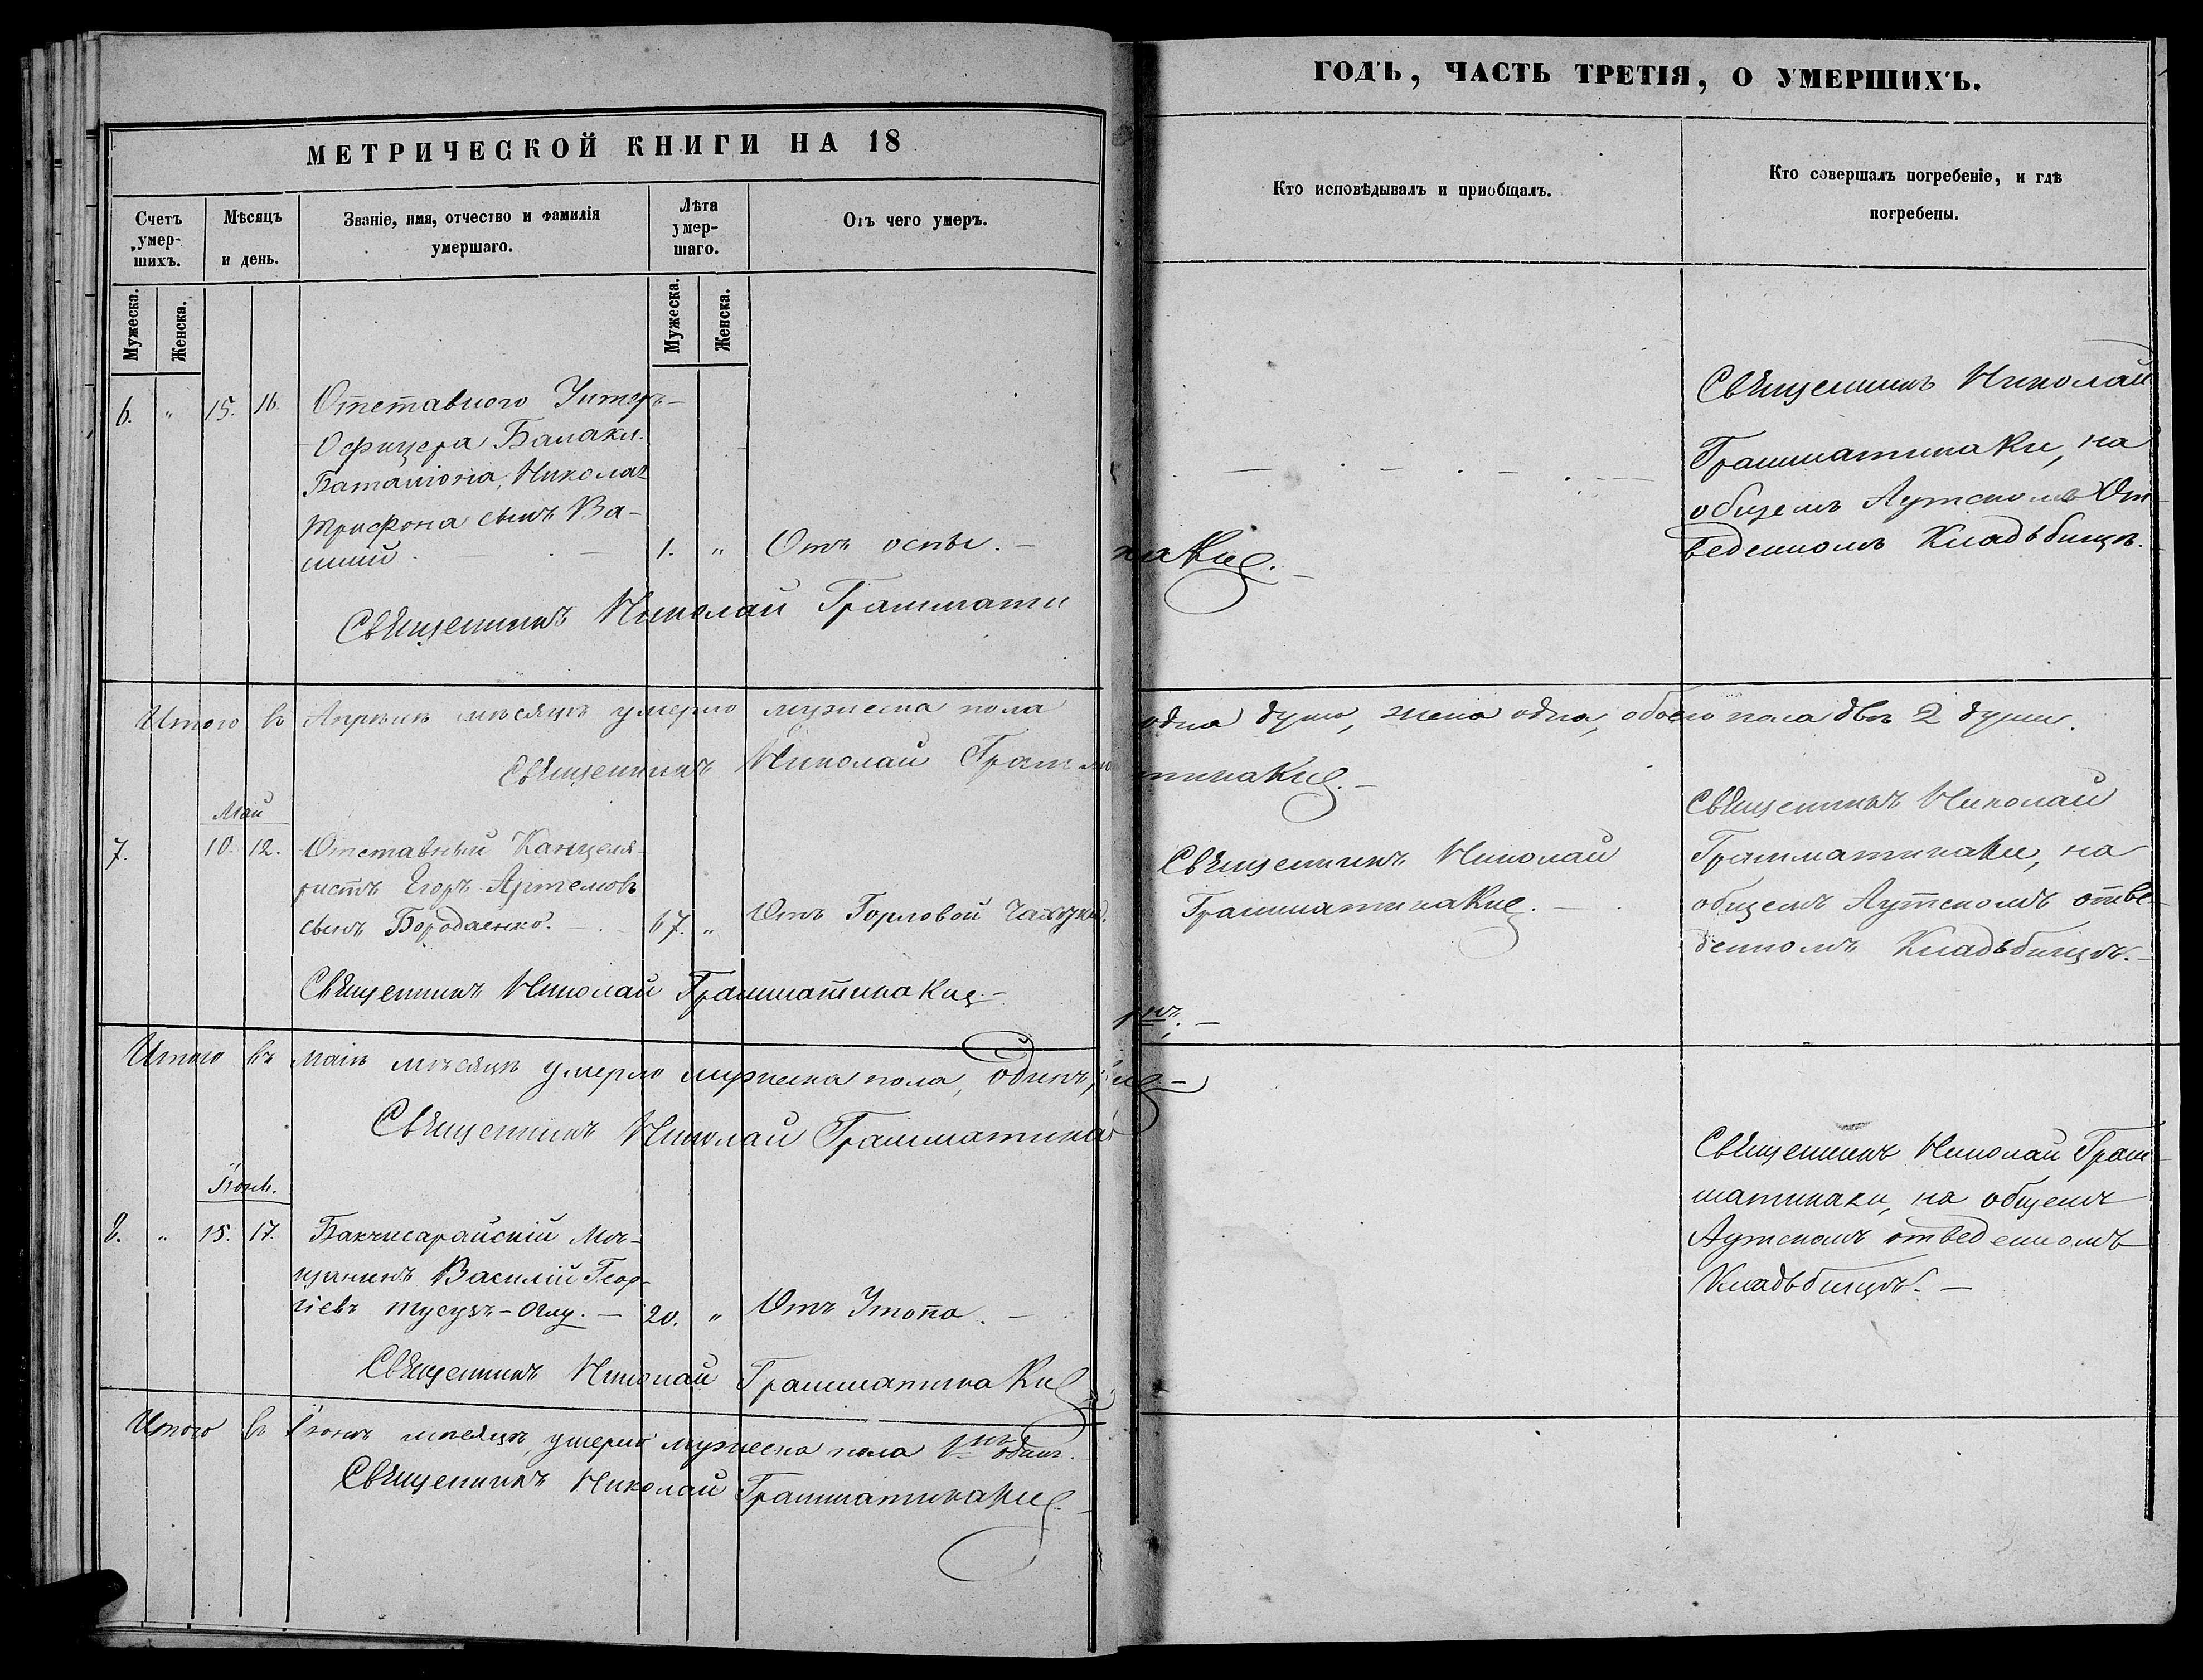 МЕТРИЧЕСКОЙ КНИГИ НА 18
Счетъ умер-шихъ.
Мѣсяцъ и день.
Званіе, имя, отчество и фамилія умершаго.
Лѣта умер-шаго.
Отъ чего умеръ.
Мужеска.
Женска.
Мужеска.
Женска.
6. „ 15. 16. Отставного Унтеръ-
Офицера Балакл.
Баталіона, Николая
Трифона сынъ Ва-
силій. 1. „ Отъ оспы. —
Священникъ Николай Граммати
Итого въ Апрѣлѣ мѣсяцѣ умерло мужеска пола
Священникъ Николай Грамма
Май
7. 10. 12. Отставный Канцеля-
ристъ Егоръ Артемовъ
сынъ Бородаенко. 67. „ Отъ Горловой Чахотки.
Священникъ Николай Грамматикаки. —
Итого въ Маіѣ мѣсяцѣ умерло мужеска пола, одинъ,
Священникъ Николай Грамматика
Іюнь.
8. „ 15. 17. Бакчисарайскій Мѣ-
щанинъ Василій Геор-
гіевъ Тусузъ-Оглу. — 20. „ Отъ Утопа. —
Священникъ Николай Грамматикаки
Итого въ Іюнѣ мѣсяцѣ умерло мужеска пола 1нъ одинъ.
Священникъ Николай Грамматикаки.
ГОДЪ, ЧАСТЬ ТРЕТІЯ, О УМЕРШИХЪ.
Кто исповѣдывалъ и пріобщалъ.
Кто совершалъ погребеніе, и гдѣ погребены.
Священникъ Николай
Грамматикаки, на
общемъ Аутскомъ От-
веденномъ Кладьбищѣ.
каки. —
одна душа, жена одна, обоего пола двѣ 2 души.
тикаки. —
Священникъ Николай
Грамматикаки. —
Священникъ Николай
Грамматикаки, на
общемъ Аутскомъ отве-
денномъ Кладьбищѣ. —
ки. —
Священникъ Николай Грам-
матикаки, на общемъ
Аутскомъ отведенномъ
Кладьбищѣ. —